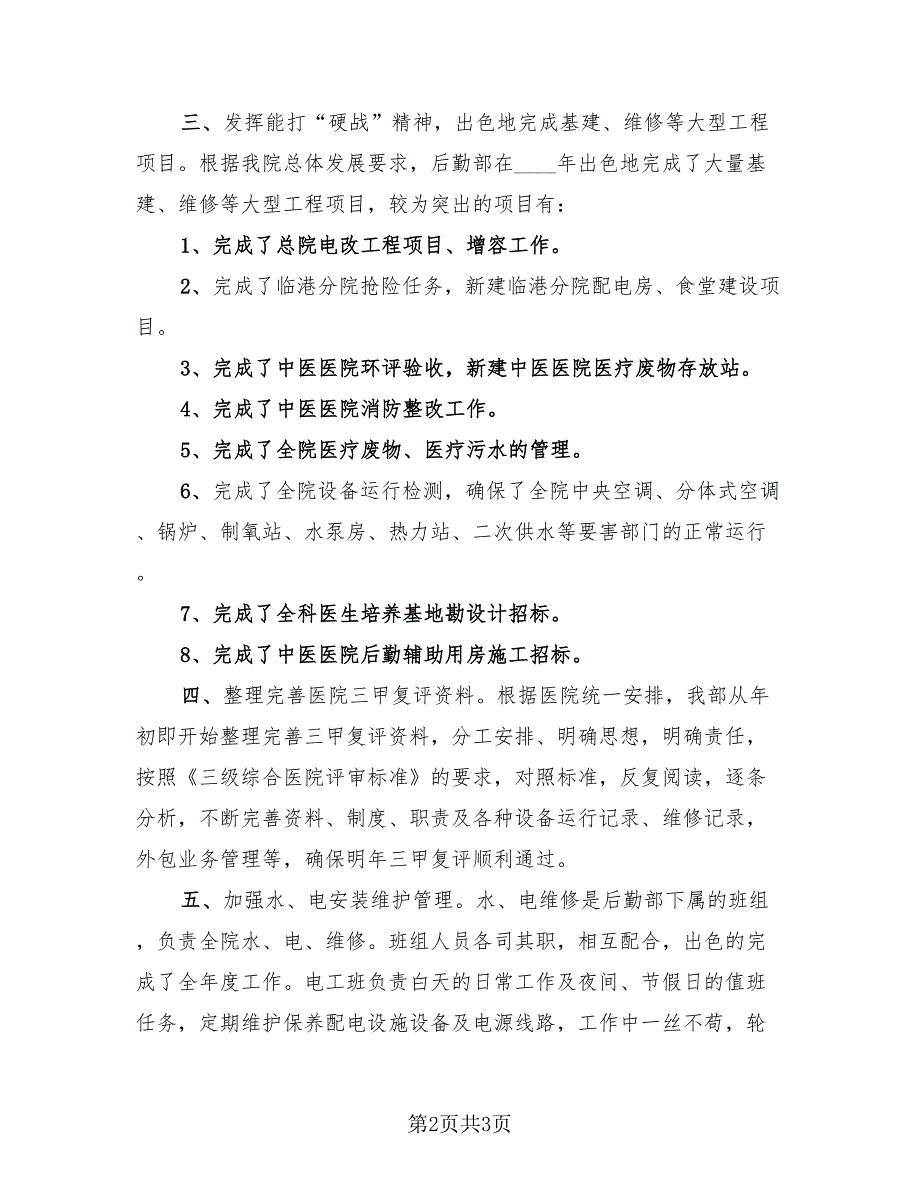 三、发挥能打“硬战”精神，出色地完成基建、维修等大型工程
项目。根据我院总体发展要求，后勤部在____年出色地完成了大量基
建、维修等大型工程项目，较为突出的项目有：
1、完成了总院电改工程项目、增容工作。
2、完成了临港分院抢险任务，新建临港分院配电房、食堂建设项
目。
3、完成了中医医院环评验收，新建中医医院医疗废物存放站。
4、完成了中医医院消防整改工作。
5、完成了全院医疗废物、医疗污水的管理。
6、完成了全院设备运行检测，确保了全院中央空调、分体式空调
、锅炉、制氧站、水泵房、热力站、二次供水等要害部门的正常运行
。
7、完成了全科医生培养基地勘设计招标。
8、完成了中医医院后勤辅助用房施工招标。
四、整理完善医院三甲复评资料。根据医院统一安排，我部从年
初即开始整理完善三甲复评资料，分工安排、明确思想，明确责任，
按照《三级综合医院评审标准》的要求，对照标准，反复阅读，逐条
分析，不断完善资料、制度、职责及各种设备运行记录、维修记录，
外包业务管理等，确保明年三甲复评顺利通过。
五、加强水、电安装维护管理。水、电维修是后勤部下属的班组
，负责全院水、电、维修。班组人员各司其职，相互配合，出色的完
成了全年度工作。电工班负责白天的日常工作及夜间、节假日的值班
任务，定期维护保养配电设施设备及电源线路，工作中一丝不苟，轮
第2页共3页